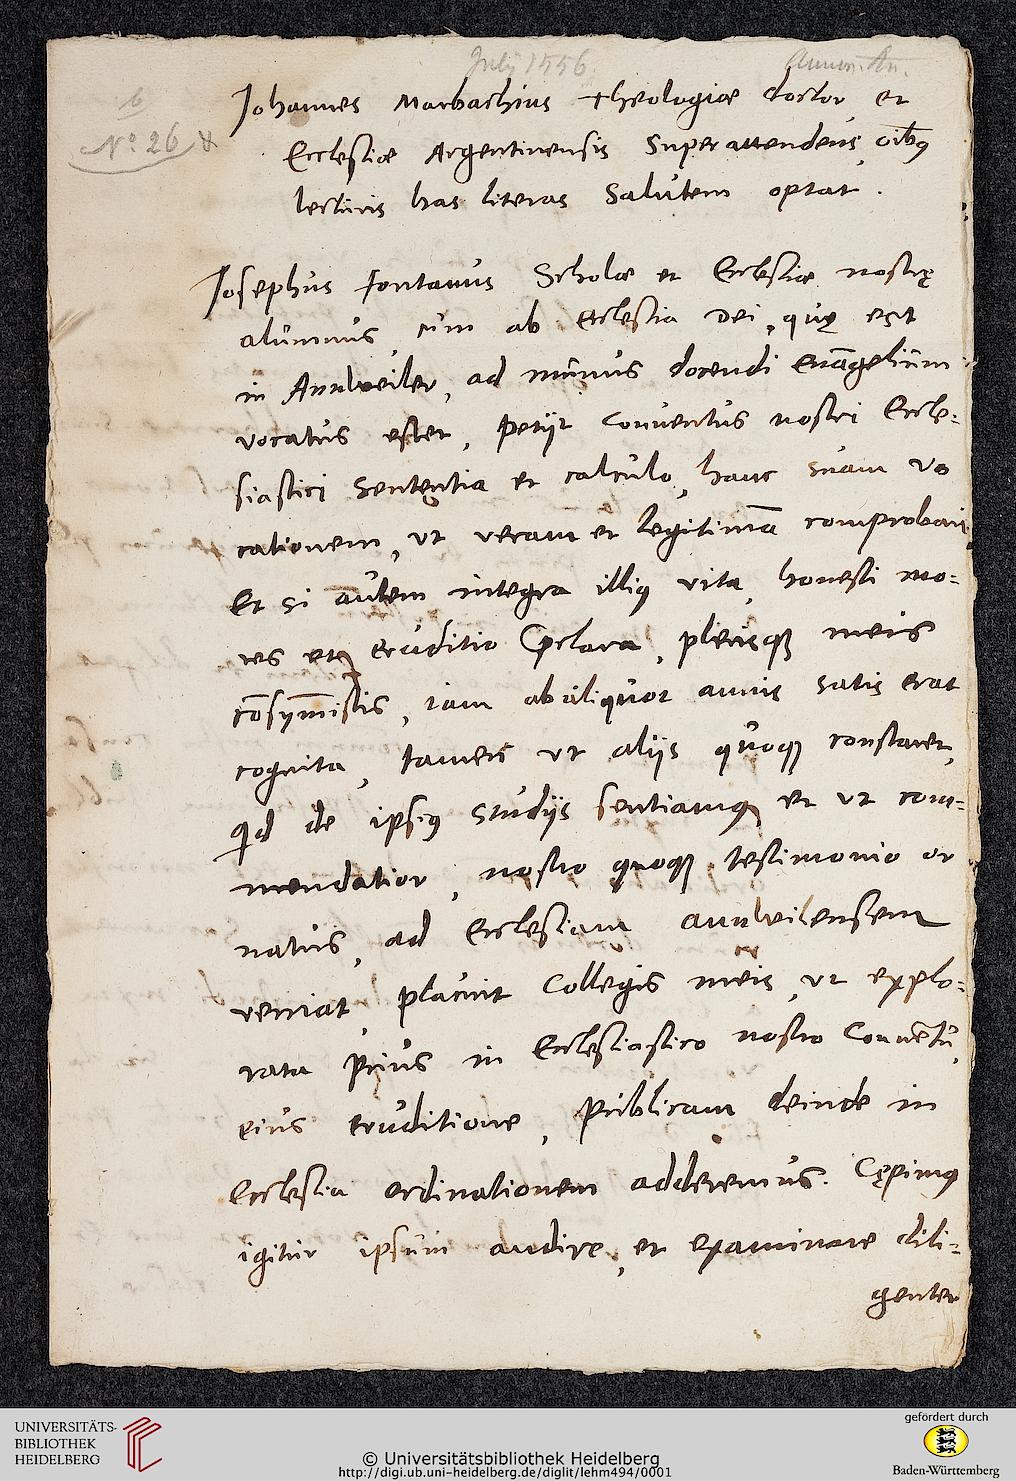 July 1556.
Nº 26
Johannes Marbachius Theologiæ doctor et
Ecclesiæ Argentinensis Superattendens, oĩbꝰ
lecturis has literas Salutem optat.
Josephus Fontanus Scholæ et Ecclesiæ nostrę
alumnus, cum ab Ecclesia Dei, quę est
in Annweiler, ad munus docendi Euãgelium
vocatus esset, petijt Conuentus nostri Eccle-
siastici Sententia et calculo, hanc suam vo
cationem, ut veram et legitimã comprobari
Et si autem integra illiꝰ vita, honesti mo-
res et eruditio p̃clara, plerisqꝫ meis
cõsym̃istis, iam ab aliquot annis satis erat
cognita, tamen ut alijs quoqꝫ constaret,
qd de ipsiꝰ studijs sentiamꝰ, et ut com-
mendatior, nostro quoqꝫ testimonio or
natus, ad Ecclesiam annwilensem
veniat, placuit Collegis meis, ut explo-
rata prius in Ecclesiastico nostro Conuẽtu,
eius eruditione, publicam deinde in
Ecclesia ordinationem adderemus. Cępimꝰ
igitur ipsum audire, et examinare dili-
genter
UNIVERSITÄTS-
BIBLIOTHEK
HEIDELBERG
© Universitätsbibliothek Heidelberg
http://digi.ub.uni-heidelberg.de/diglit/lehm494/0001
gefördert durch
Baden-Württemberg